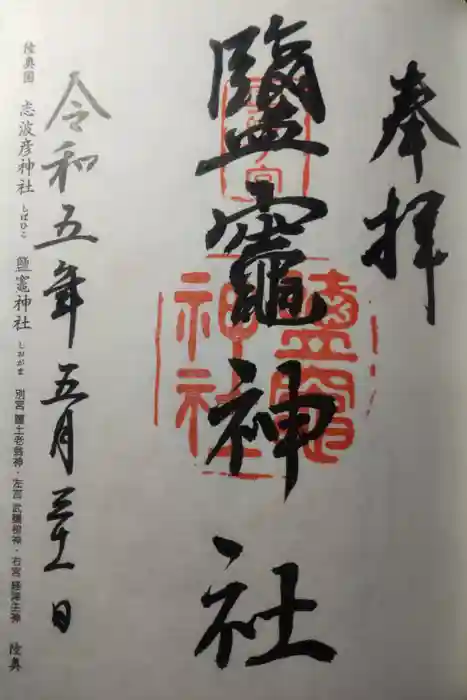 奉拝
鹽竈神社
鹽竈
神社
令和五年五月三十一日
陸奥國 志波彦神社 しばひこ 鹽竈神社 しおがま 別宮 鹽土老翁神・左宮 武甕槌神・右宮 經津主神 陸奥